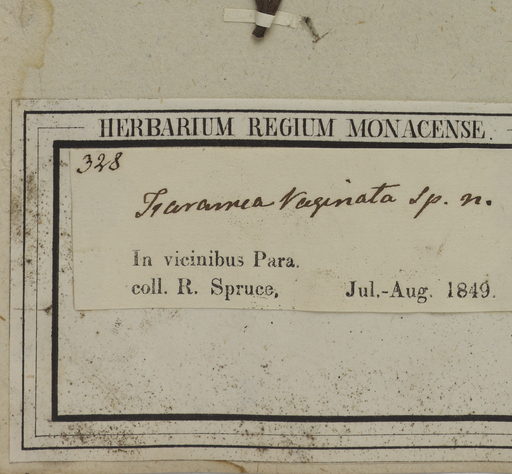 HERBARIUM REGIUM MONACENSE.
328
Faramea Vaginata Sp. n.
In vicinibus Para.
coll. R. Spruce, Jul.-Aug. 1849.